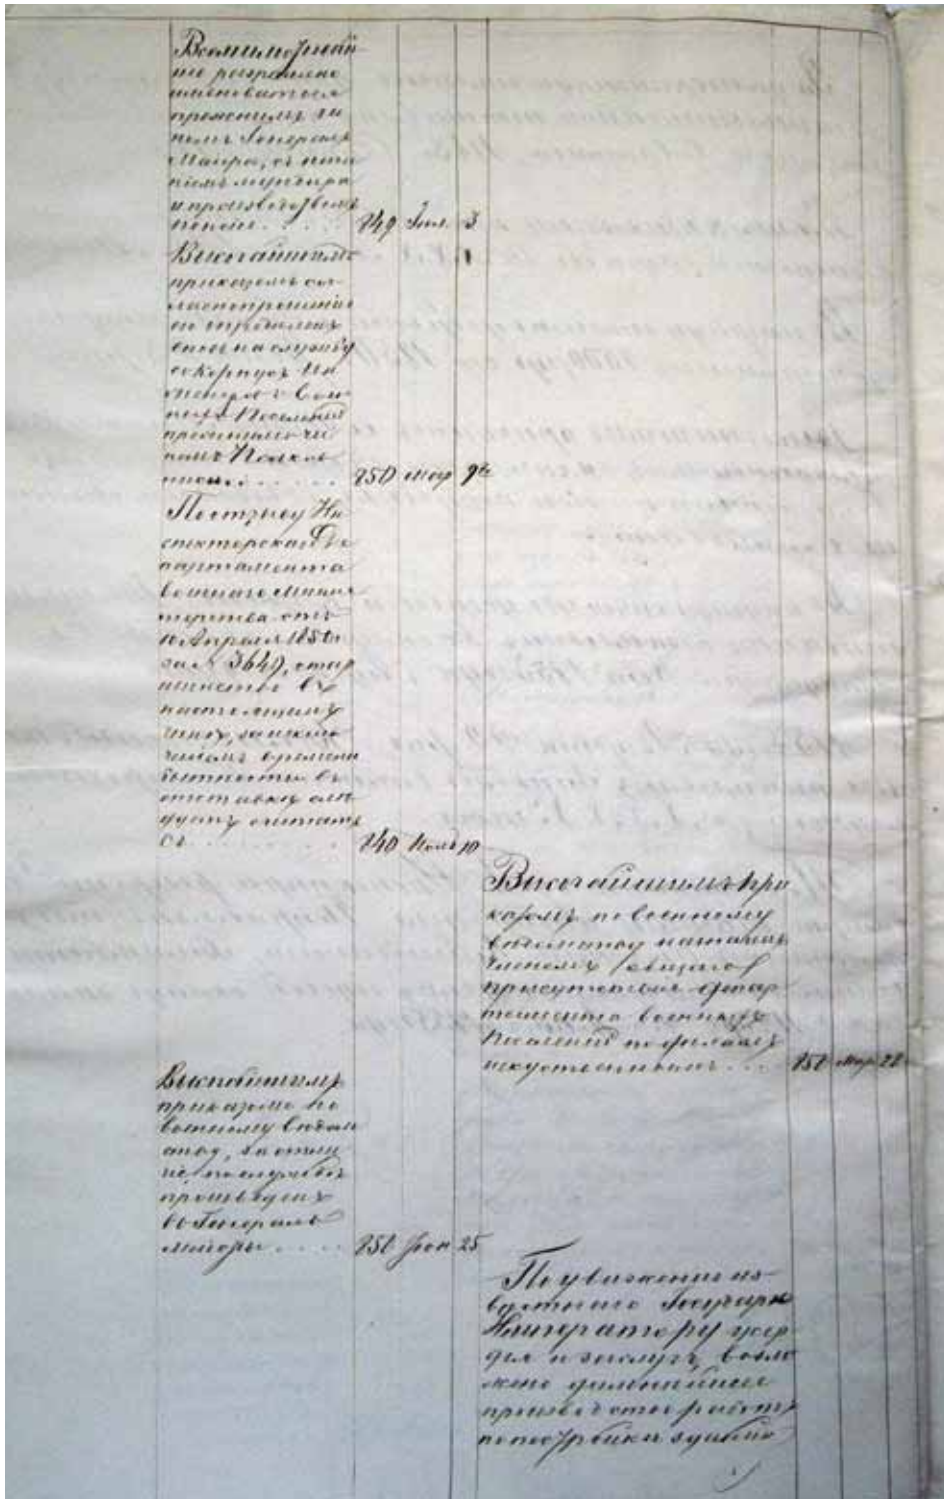 Всемилостивѣй
ше разрѣшено
именоваться
прежнимъ чи
номъ Генералъ
Маіора, съ ноше
ніемъ мундира
и производствомъ
пенсіи . . . . 849 Іюл. 3
Высочайшимъ
приказомъ сог
ласно прошенію
опредѣленъ
вновь на службу
въ Корпусъ Ин
женеровъ Воен
ныхъ Поселеній
прежнимъ чи
номъ Полков
никомъ . . . . 850 Мар 9
По отзыву Ин
спекторскаго Де
партамента
Военнаго Минис
терства отъ
10 Апрѣля 1850 г.
за № 3649, стар
шинство въ
настоящемъ
чинѣ, за исклю
ченіемъ времени
бытности въ
отставкѣ слѣ
дуетъ считать
съ . . . . 840 10
Высочайшимъ при
казомъ по военному
вѣдомству назначенъ
Членомъ общаго
присутствія Депар
тамента военныхъ
Поселеній по дѣламъ
искуственнымъ . . . 850 Мар 22
Высочайшимъ
приказомъ по
военному вѣдом
ству, за отли
чіе по службѣ
произведенъ
въ Генералъ
маіоры . . . . 850 25
По уваженію из
вѣстнаго Государю
Императору усер
дія и заслугъ, возло
жено дальнѣйшее
производство работъ
по постройкѣ зданія